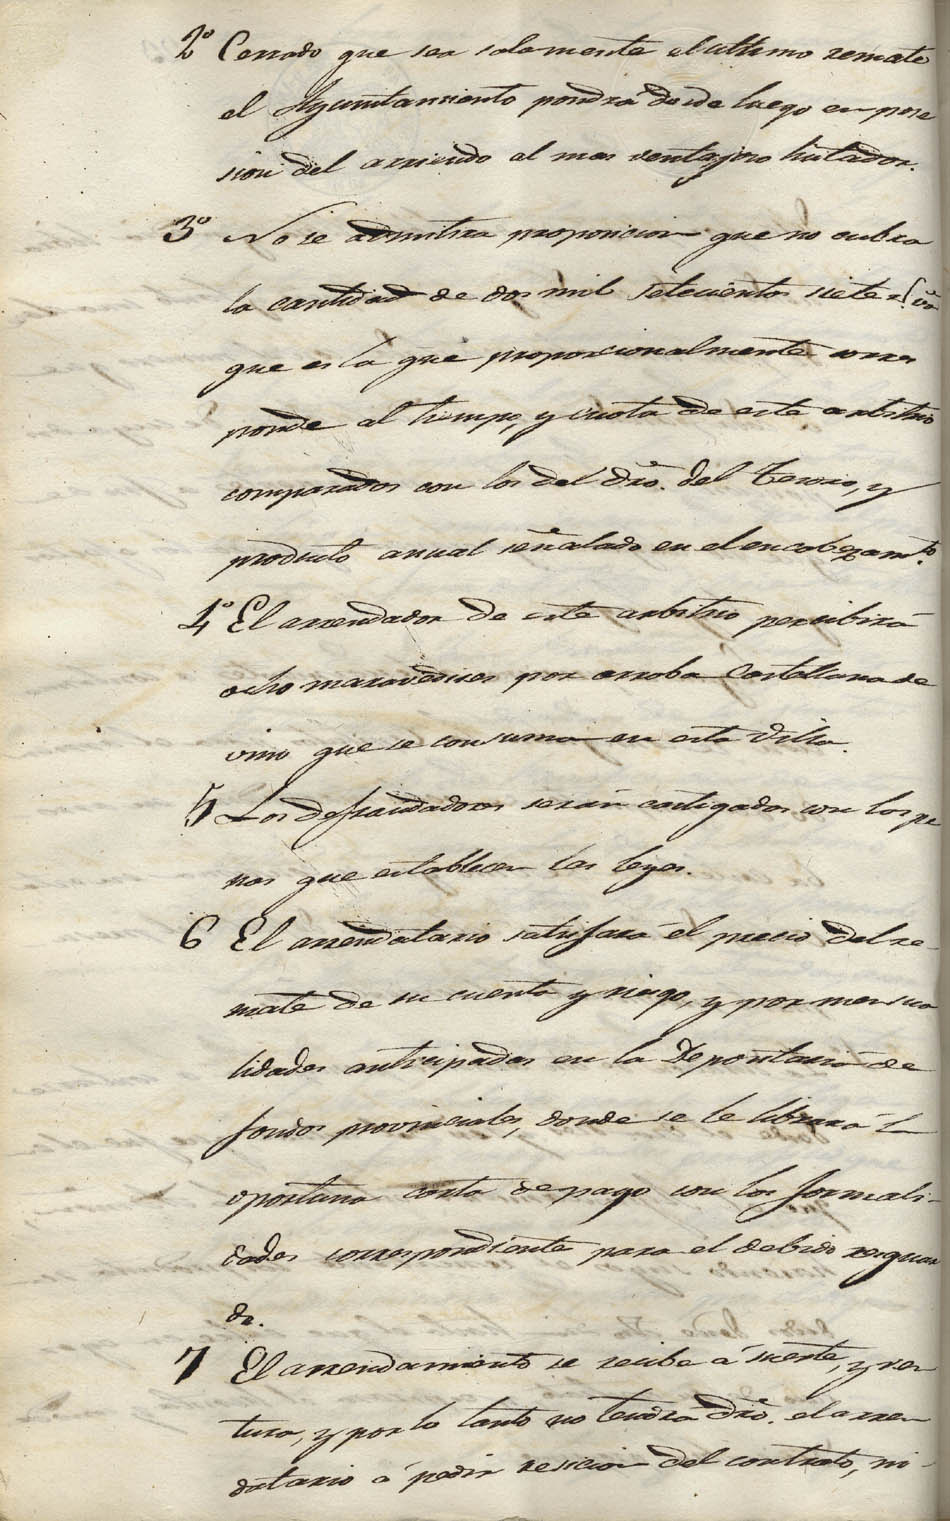 2º Cerrado que sea solamente el ultimo remate
el Ayuntamiento pondrá desde luego en pose
sion del arriendo al mas ventajoso licitador.
3º No se admitira proposicion que no cubra
la cantidad de dos mil setecientos siete r.s v.n
que es la que proporcionalmente corres
ponde al tiempo, y cuota de este arbitrio
comparados con los del dro. del Tesoro, y
producto anual señalado en el encabezam.to
4º El arrendador de este arbitrio percibirá
ocho maravedises por arroba Castellana de
vino que se consuma en esta Villa.
5 Los defraudadores serán castigados con las pe
nas que establecen las leyes.
6 El arrendatario satisfará el precio del re-
mate de su cuenta y riesgo, y por mensua
lidades anticipadas en la Depositaria de
fondos provinciales, donde se le librará la
oportuna carta de pago con las formali-
dades correspondiente para el debido resguar
do.
7 El arrendamiento se recibe á suerte, y ven
tura, y por lo tanto no tendrá dro. el arren
datario á pedir rescicion del contrato, ni-